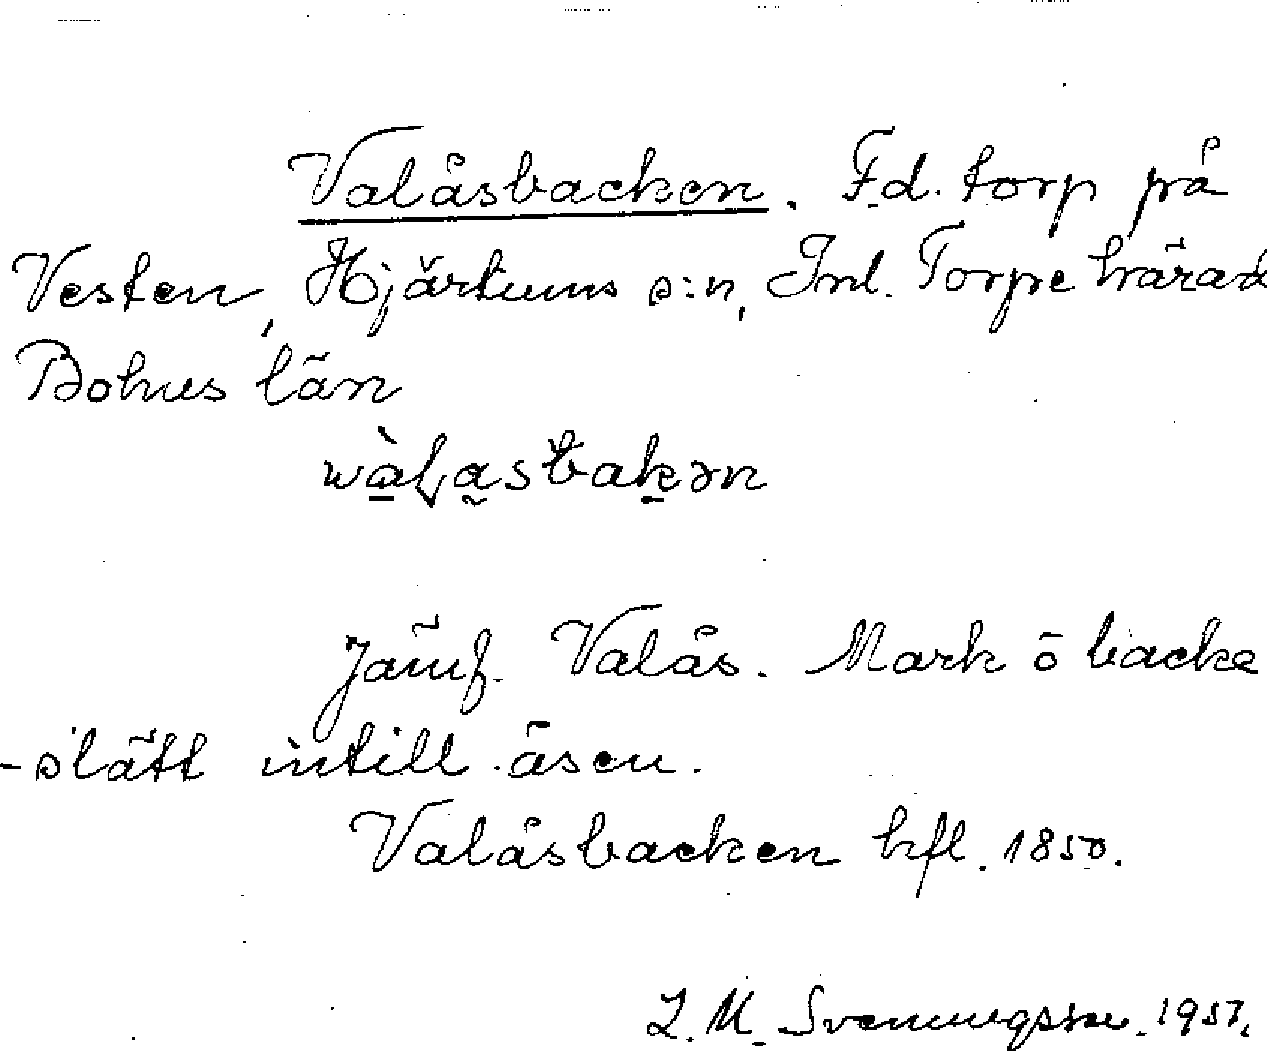 Valåsbacken. F.d. torp på
Vesten, Hjärtums s:n, Inl. Torpe härad
Bohus län
wàl̯a̰sbakən
Jämf. Valås. Mark ō backe
-slätt intill åsen.
Valåsbacken hfl. 1850.
L. M. Svenungsson. 1957.